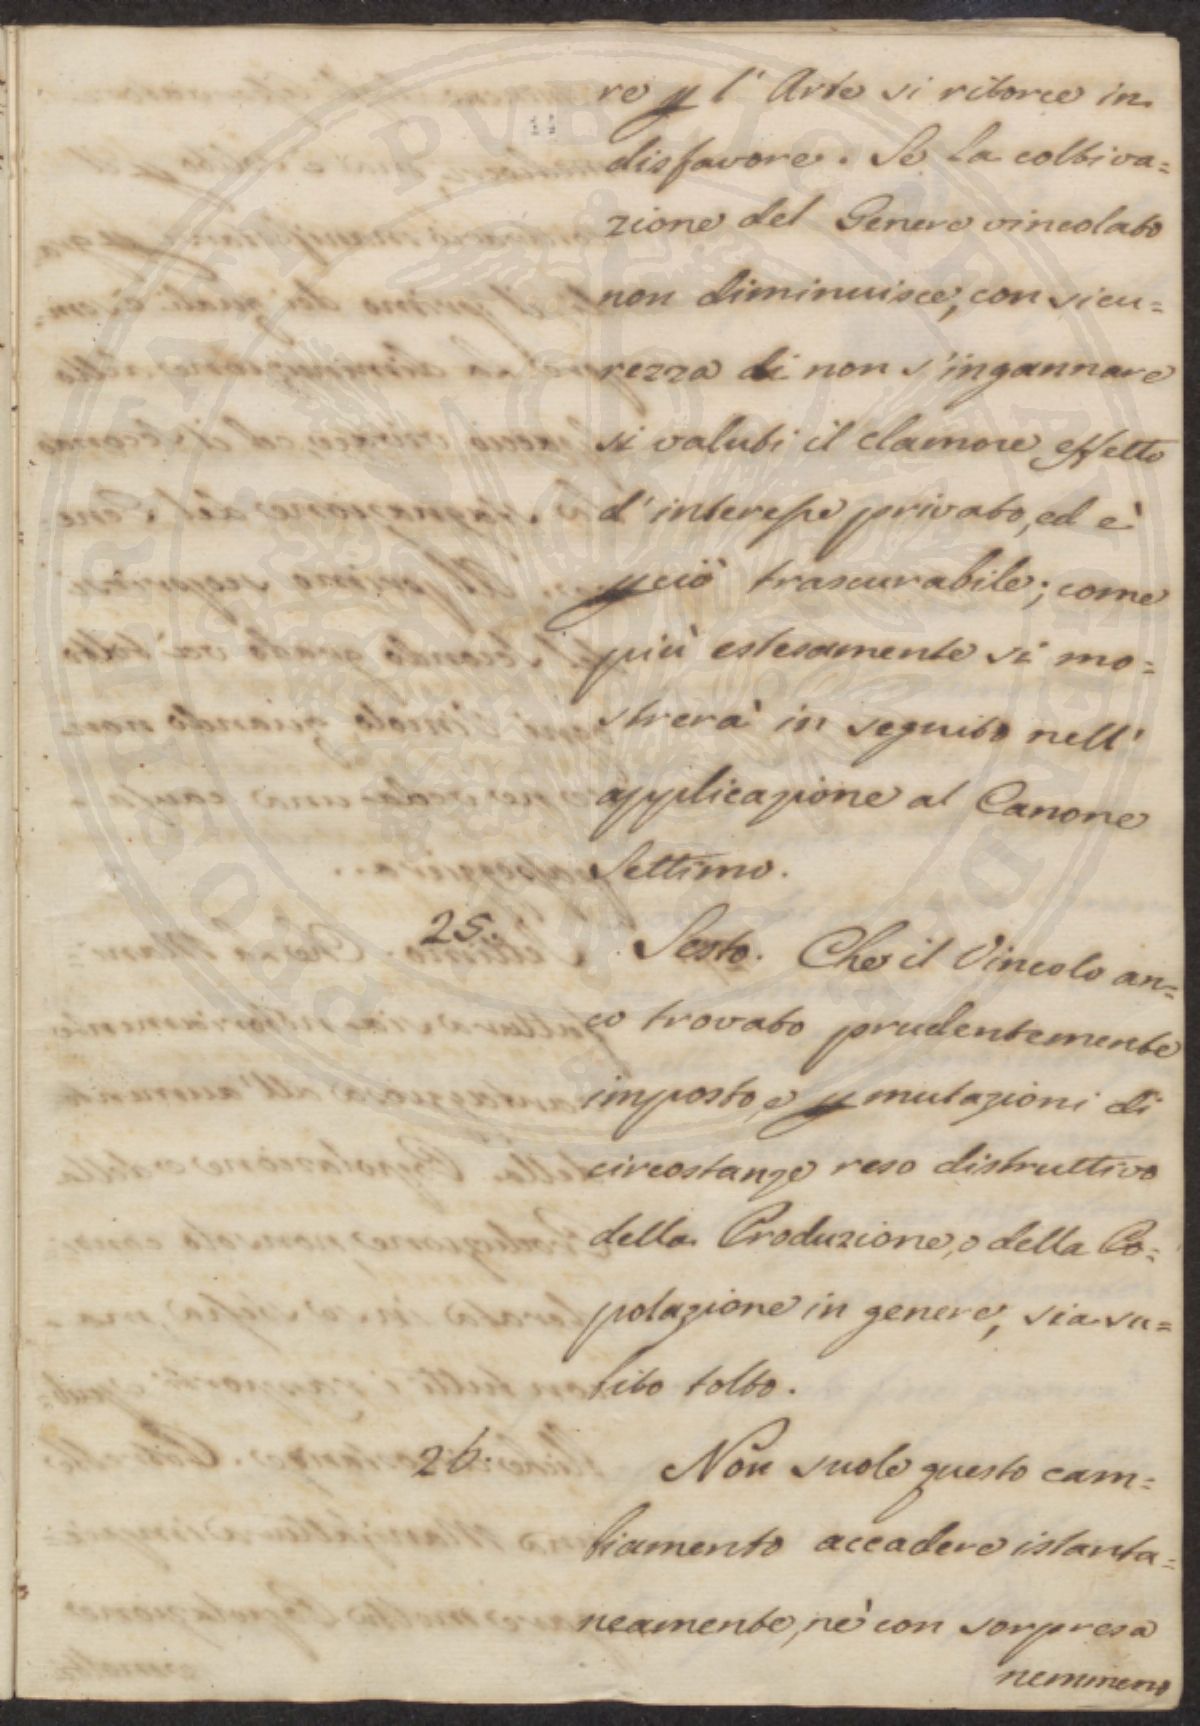 re p l' Arte si ritorce in
disfavore. Se la coltiva=
zione del Genere vincolato
non diminuisce, con sicu=
rezza di non s'ingannare
si valuti il clamore effetto
d'interesse privato, ed è
p ciò trascurabile; come
più estesamente si mo=
strerà in seguito nell'
applicazione al Canone
Settimo.
25. Sesto. Che il Vincolo an=
co trovato prudentemente
imposto, e p mutazioni di
circostanze reso distruttivo
della Produzione, o della Po=
polazione in genere, sia su=
bito tolto.
26. Non suole questo cam=
biamento accadere istanta=
neamente, nè con sorpresa
nemmeno